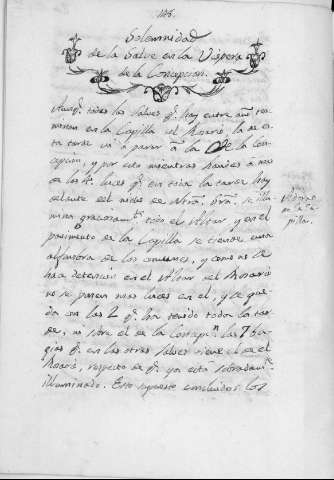 Solemnidad
de la Salve en la Vispera
de la Concepcion.
Aunq.^e todas las Salves q.^e hay entre año ter-
minen en la Capilla del Rosario, la de es-
ta tarde va à parar à la de la Con-
cepcion, y por esto mientras
de las luces q.^e en toda la tarde hay
delante del nicho de Ntra. Sra. se illu-
mina graciosam.^te todo el Altar y en el
pavimento de la Capilla se tiende una
alfombra de las comunes, y como no se
haze detencion en el Altar del Rosario
no se ponen mas luces en el, q.^e
las 2 q.^e ha tenido toda la tar-
de, no sobre el de la Concepc.^n las 7 bu-
gias q.^e en las otras Salves tiene el de el
Rosario, respecto de q.^e ya està sobradam.^te
illuminado. Esto supuesto concluidos los